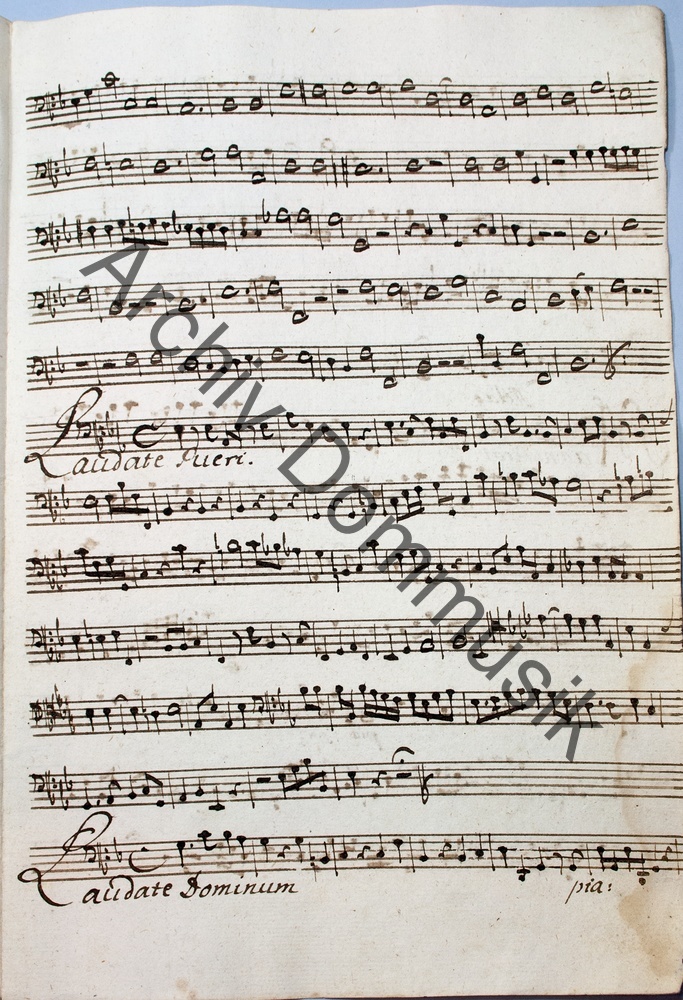 Laudate Pueri.
Laudate Dominum
pia:
Archiv Dommusik